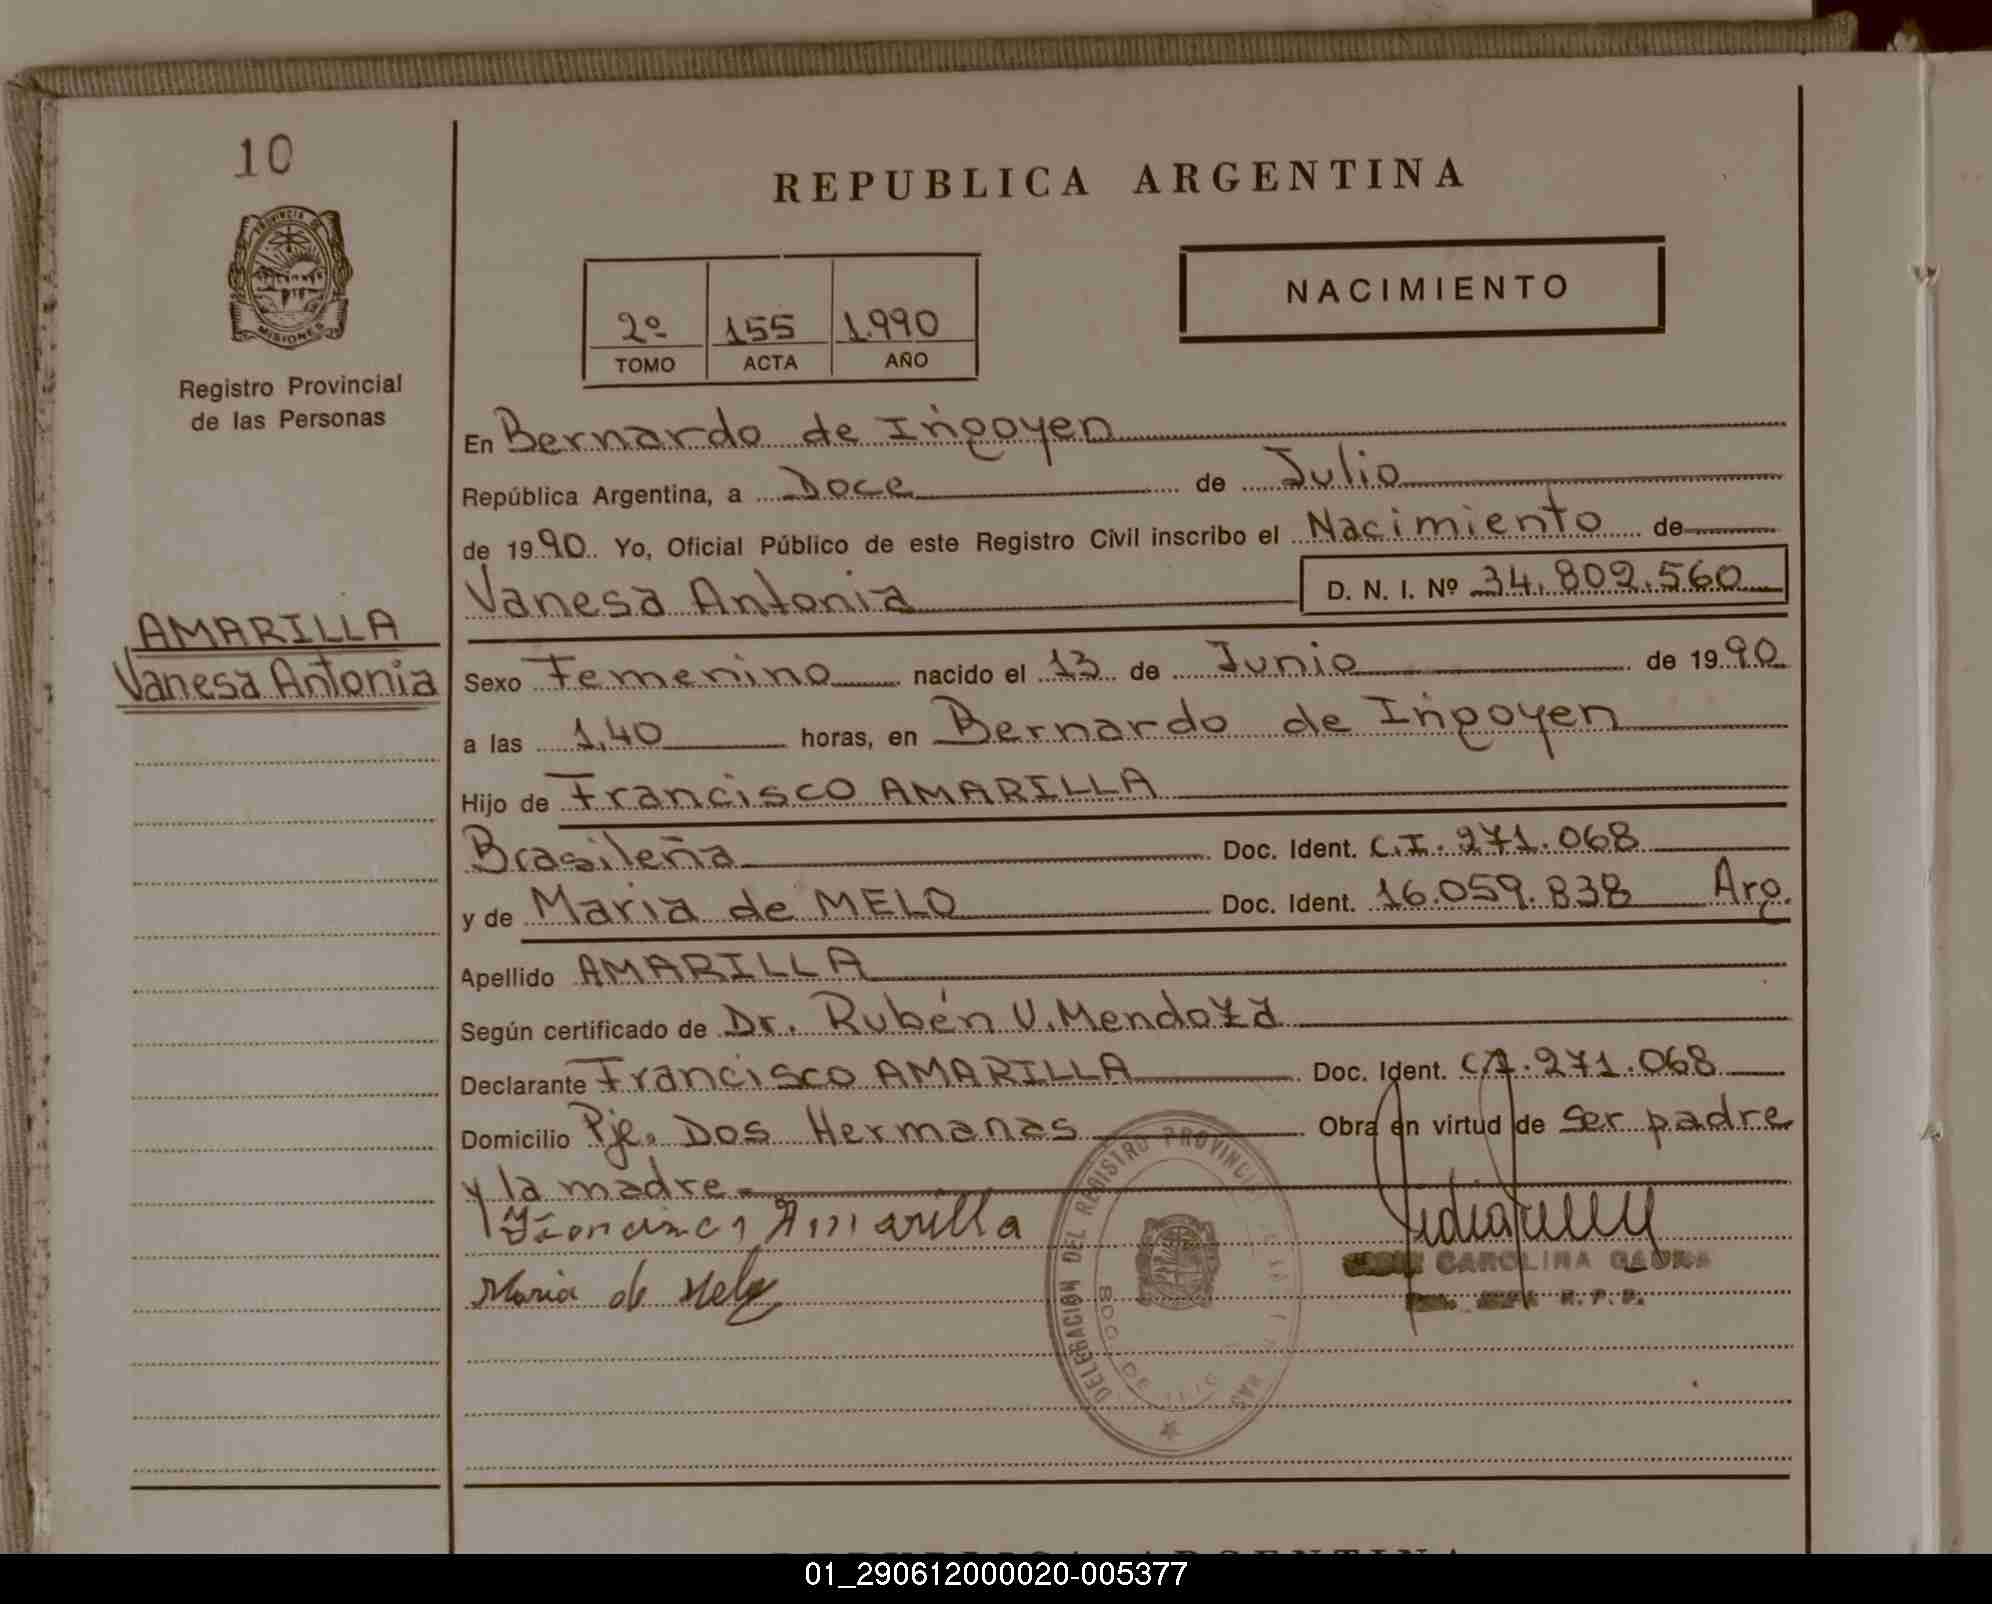 10
PROVINCIA DE
MISIONES
Registro Provincial
de las Personas
AMARILLA
Vanesa Antonia
REPUBLICA ARGENTINA
2º 155 1.990
TOMO ACTA AÑO
NACIMIENTO
En Bernardo de Irigoyen
República Argentina, a Doce de Julio
de 1990. Yo, Oficial Público de este Registro Civil inscribo el Nacimiento de
Vanesa Antonia D. N. I. Nº 34.802.560
Sexo Femenino nacido el 13 de Junio de 1990
a las 1.40 horas, en Bernardo de Irigoyen
Hijo de Francisco AMARILLA
Brasileña Doc. Ident. C.I. 271.068
y de Maria de MELO Doc. Ident. 16.059.838 Arg.
Apellido AMARILLA
Según certificado de Dr. Rubén V. Mendoza
Declarante Francisco AMARILLA Doc. Ident. C.I. 271.068
Domicilio Pje. Dos Hermanas Obra en virtud de ser padre
y la madre.
Francisco Amarilla
Maria de Melo
DELEGACIÓN DEL REGISTRO PROVINCIAL
CAROLINA
R.P.P.
REPUBLICA ARGENTINA
01_290612000020-005377